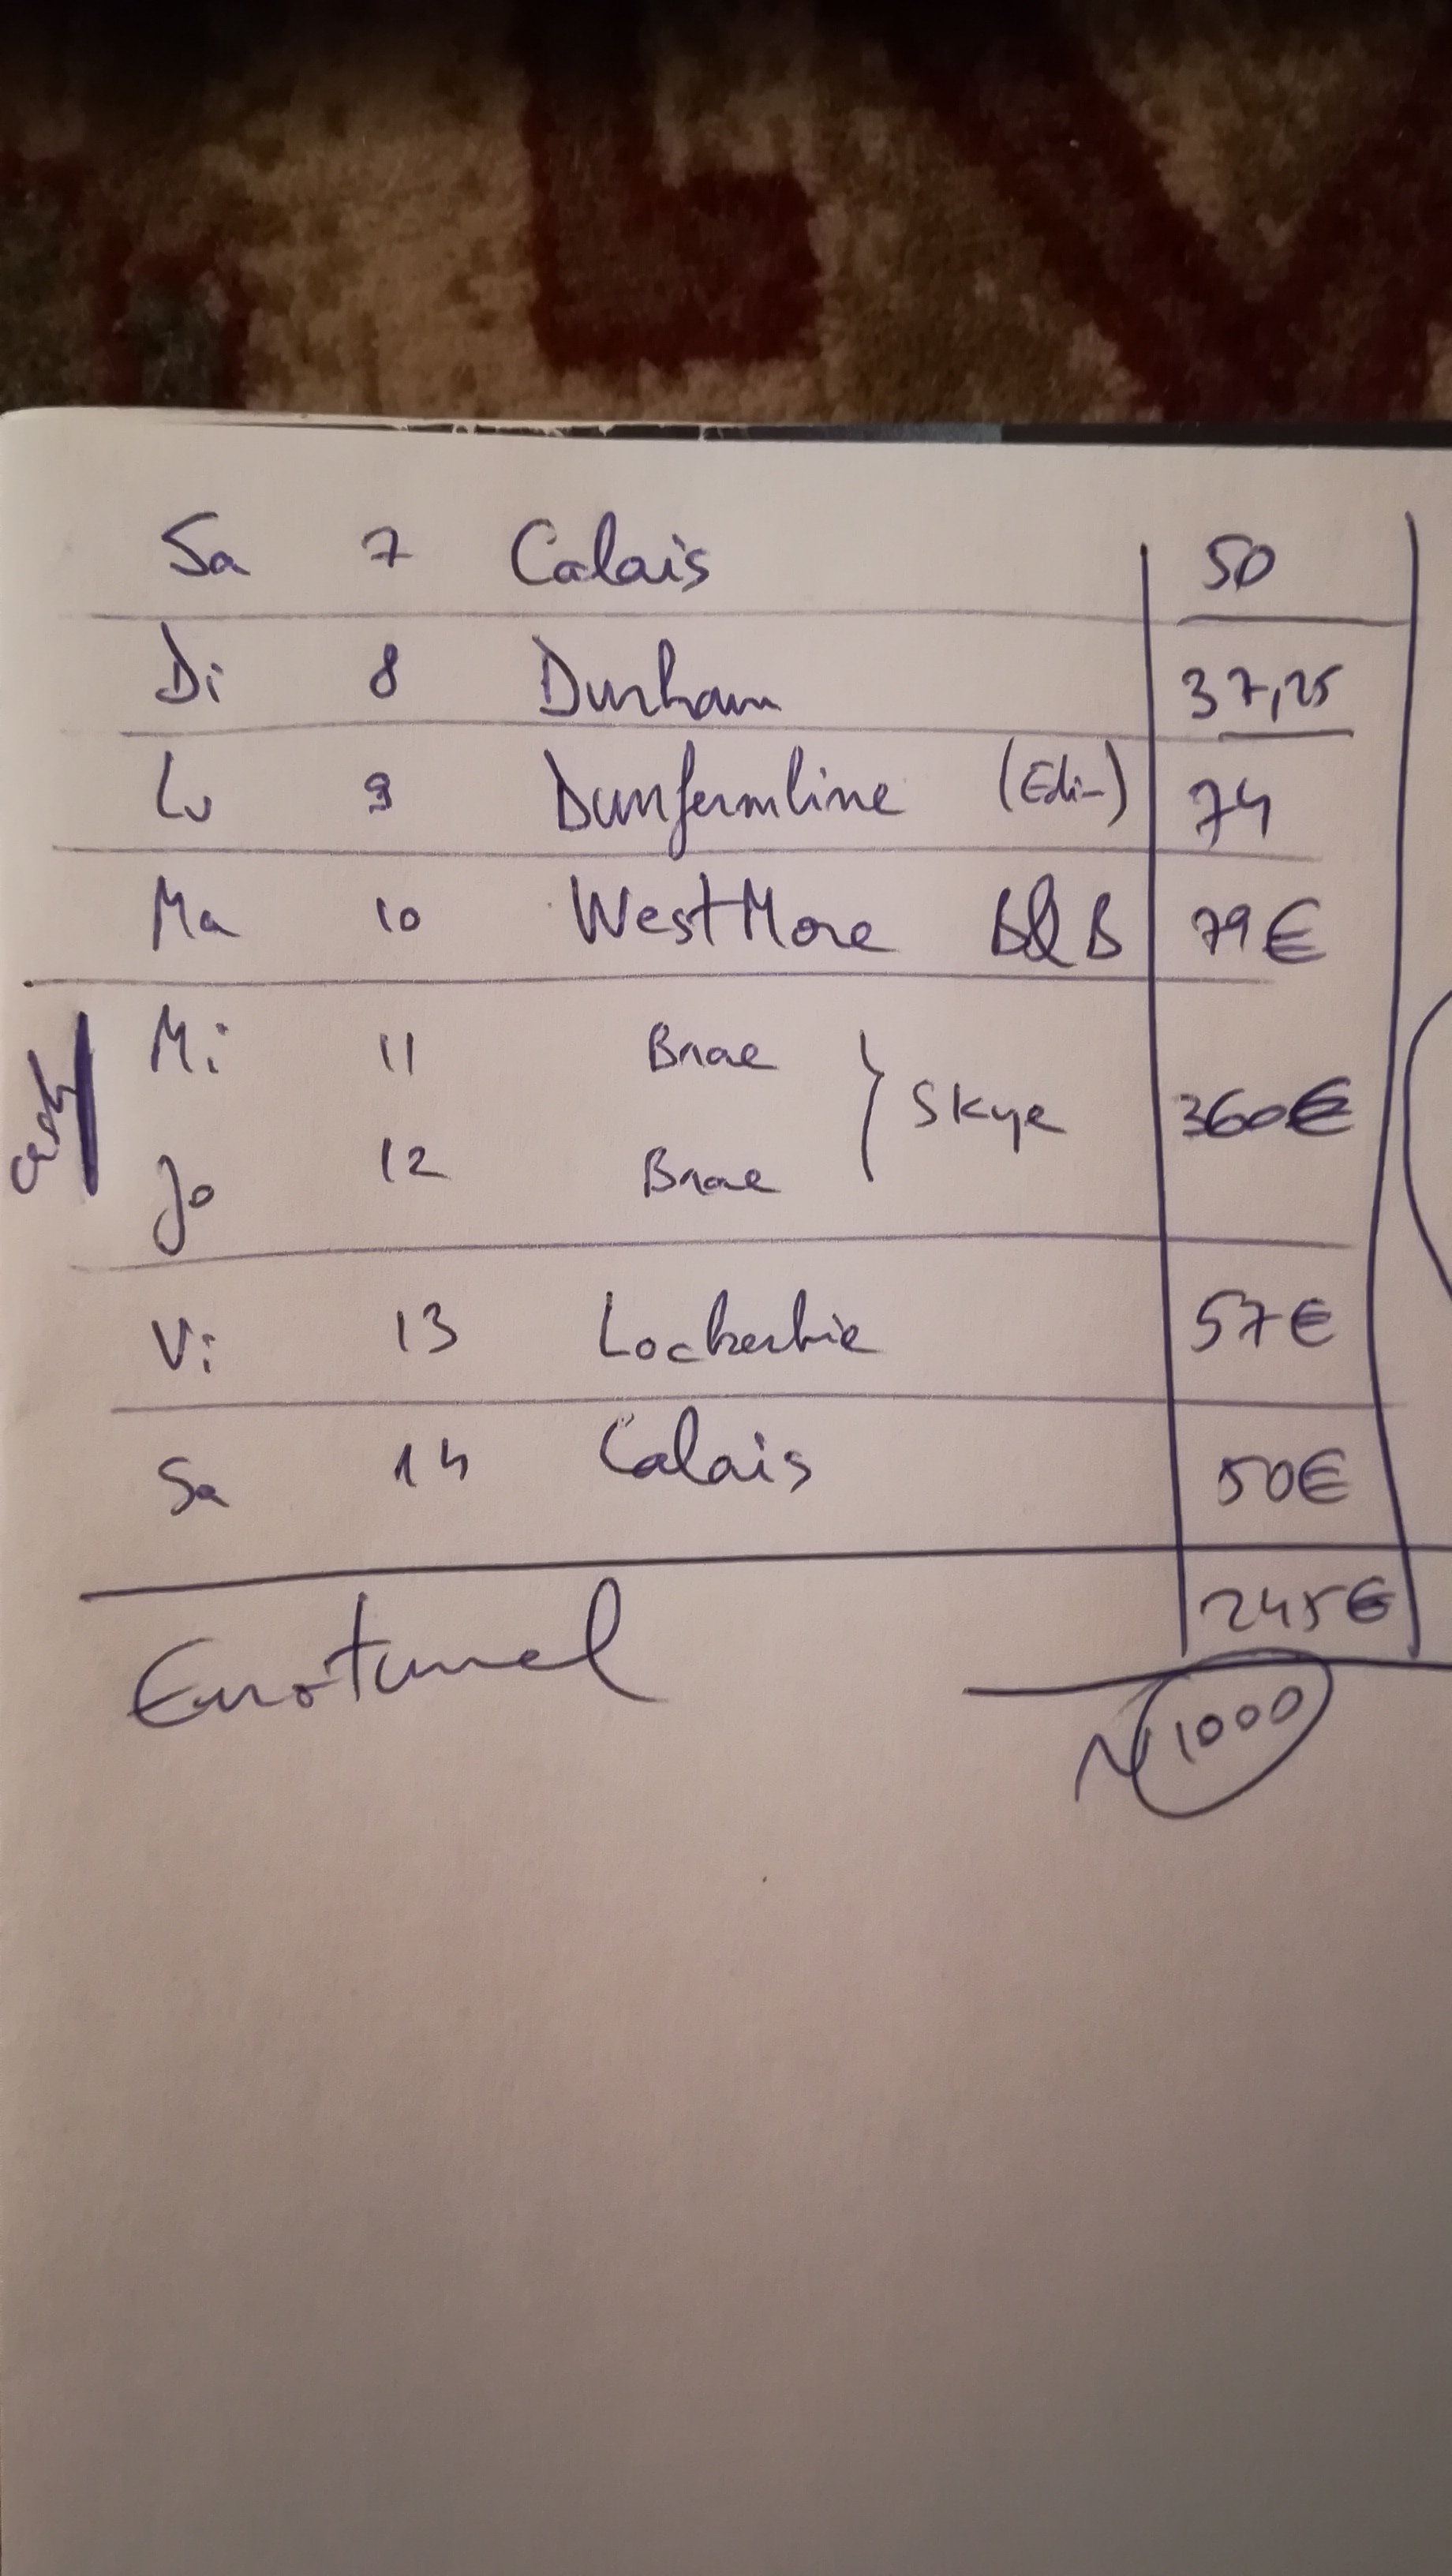 Sa 7 Calais 50
Di 8 Durham 37,25
Lu 9 Dunfermline (Edi-) 74
Ma 10 WestMore B&B 79€
cash
Mi 11 Brae
Skye 360€
Jo 12 Brae
Vi 13 Lockerbie 57€
Sa 14 Calais 50€
Eurotunnel 245€
~1000